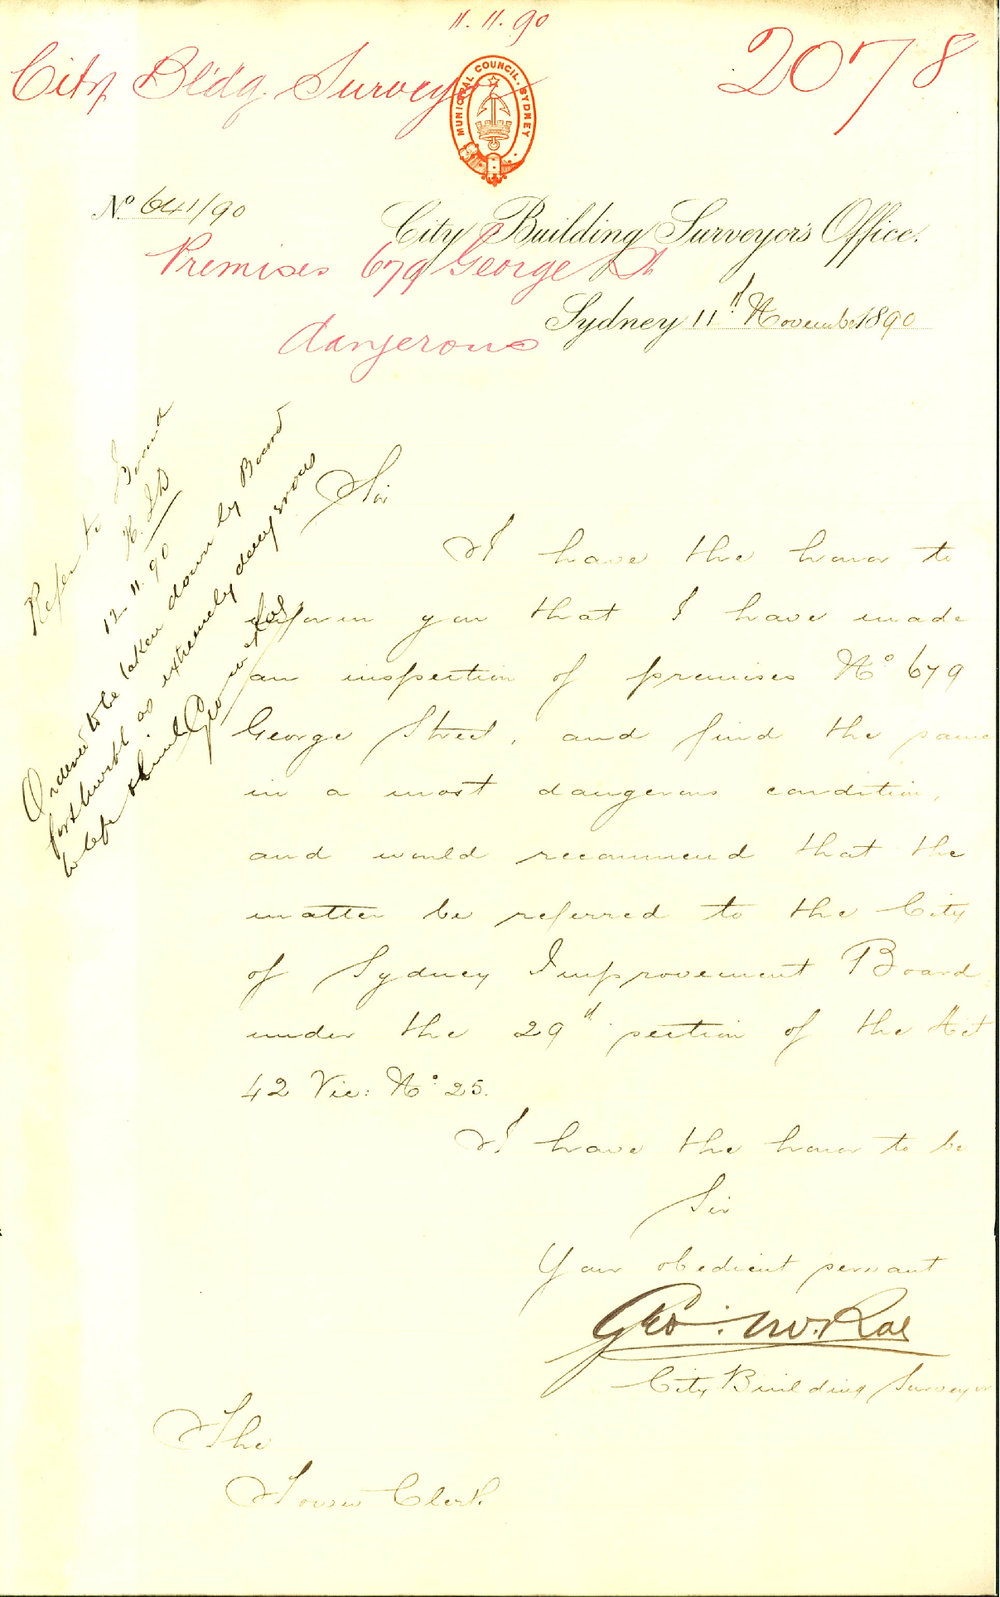 11.11.90
City Bldg. Surveyor
2078
MUNICIPAL COUNCIL. SYDNEY
No 641/90
City Building Surveyor's Office.
Premises 679 George St
dangerous
Sydney 11th November 1890
Refer to Board
12.11.90
Ordered to be taken down by Board
forthwith as extremely dangerous
to life
Geo McRae
Sir
I have the honor to
inform you that I have made
an inspection of premises No 679
George Street, and find the same
in a most dangerous condition,
and would recommend that the
matter be referred to the City
of Sydney Improvement Board
under the 29th section of the Act
42 Vic: No 25.
I have the honor to be
Sir
Your obedient servant
Geo: McRae
City Building Surveyor
The
Town Clerk